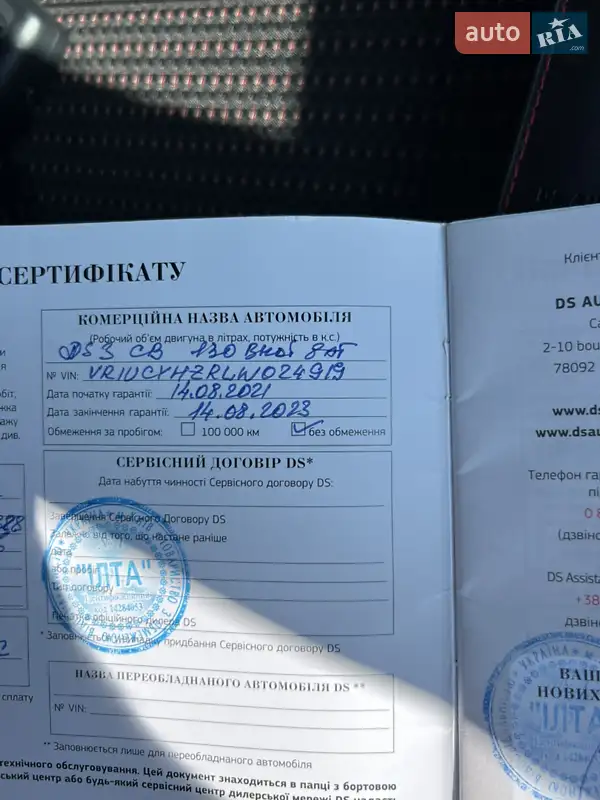 auto RIA.com
СЕРТИФІКАТУ
КОМЕРЦІЙНА НАЗВА АВТОМОБІЛЯ
(Робочий об'єм двигуна в літрах, потужність в к.с.)
DS 3 CB 130 8AT
№ VIN:
Дата початку гарантії: 14.08.2021
Дата закінчення гарантії: 14.08.2023
Обмеження за пробігом: 100 000 км без обмеження
СЕРВІСНИЙ ДОГОВІР DS*
Дата набуття чинності Сервісного договору DS:
Завершення Сервісного Договору DS
залежно від того, що настане раніше
Дата
або пробіг
Тип договору
Печатка офіційного дилера DS
* Заповнюється у випадку придбання Сервісного договору DS
"ІЛТА"
Ідентифікаційний
код 14264053
НАЗВА ПЕРЕОБЛАДНАНОГО АВТОМОБІЛЯ DS **
№ VIN:
** Заповнюється лише для переобладнаного автомобіля
технічного обслуговування. Цей документ знаходиться в папці з бортовою
ський центр або будь-який сервісний центр дилерської мережі DS
сплату
див.
Клієн
DS AU
2-10 bou
78092
www.ds
www.dsau
Телефон га
пі
0 8
(дзвін
DS Assista
+38
дзвін
ВАШ
НОВИХ
УКРАЇНА
"ІЛТА"